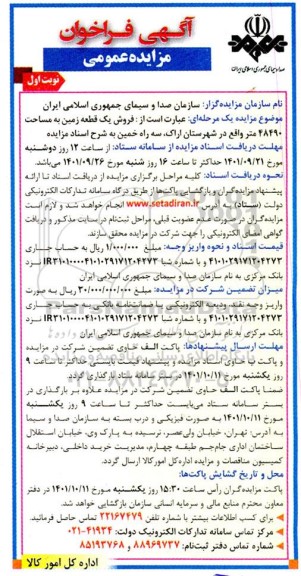 آگهی فراخوان
مزایده عمومی
صدا و سیمای جمهوری اسلامی ایران
نوبت اول
نام سازمان مزایده‌گزار: سازمان صدا و سیمای جمهوری اسلامی ایران
موضوع مزایده یک مرحله‌ای: عبارت است از: فروش یک قطعه زمین به مساحت
۴۸۴۹۰ متر واقع در شهرستان اراک، سه راه خمین به شرح اسناد مزایده
مهلت دریافت اسناد مزایده از سامانه ستاد: از ساعت ۱۲ روز دوشنبه
مورخ ۱۴۰۱/۰۹/۲۱ حداکثر تا ساعت ۱۶ روز شنبه مورخ ۱۴۰۱/۰۹/۲۶ می‌باشد.
نحوه دریافت اسناد: کلیه مراحل برگزاری مزایده از دریافت اسناد تا ارائه
پیشنهاد مزایده‌گران و بازگشایی پاکت‌ها از طریق درگاه سامانه تدارکات الکترونیکی
دولت (ستاد) به آدرس www.setadiran.ir انجام خواهد شد و لازم است
مزایده‌گران در صورت عدم عضویت قبلی، مراحل ثبت‌نام در سایت مذکور و دریافت
گواهی امضای الکترونیکی را جهت شرکت در مزایده محقق سازند.
قیمت اسناد و نحوه واریز وجه: مبلغ ۱/۰۰۰/۰۰۰ ریال به حساب جاری
نزد
بانک مرکزی به نام سازمان صدا و سیمای جمهوری اسلامی ایران
میزان تضمین شرکت در مزایده: مبلغ ریال به صورت
واریز وجه نقد و ودیعه الکترونیکی یا ضمانت‌نامه بانکی به حساب جاری
نزد
بانک مرکزی به نام سازمان صدا و سیمای جمهوری اسلامی ایران
مهلت ارسال پیشنهادها: پاکت الف حاوی تضمین شرکت در مزایده
و پاکت ب حاوی اسناد مزایده و پیشنهاد قیمت بایستی حداکثر تا ساعت ۹
روز یکشنبه مورخ ۱۴۰۱/۱۰/۱۱ در سامانه ستاد بارگذاری گردد.
ضمنا پاکت الف حاوی تضمین شرکت در مزایده علاوه بر بارگذاری در
سامانه ستاد می‌بایست حداکثر تا ساعت ۹ روز یکشنبه
مورخ ۱۴۰۱/۱۰/۱۱ به صورت فیزیکی و درب بسته به سازمان صدا و سیما
به آدرس: تهران، خیابان ولی‌عصر، نرسیده به پارک وی، خیابان استقلال
ساختمان اداری جام‌جم طبقه چهارم، مدیریت خرید داخلی، دبیرخانه
کمیسیون مناقصات و مزایده اداره کل امور کالا ارسال گردد.
محل و تاریخ گشایش پاکت‌ها:
پاکت مزایده‌گران رأس ساعت ۱۵:۳۰ روز یکشنبه مورخ ۱۴۰۱/۱۰/۱۱ در دفتر
معاون محترم منابع مالی و سرمایه انسانی سازمان بازگشایی خواهد شد.
برای کسب اطلاعات بیشتر با شماره تلفن ۲۲۱۶۷۴۷۹ تماس حاصل فرمائید.
مرکز تماس سامانه تدارکات الکترونیک دولت: ۴۱۹۳۴-۰۲۱
شماره تماس دفتر ثبت‌نام: ۸۸۹۶۹۷۳۷ و ۸۵۱۹۳۷۶۸
اداره کل امور کالا